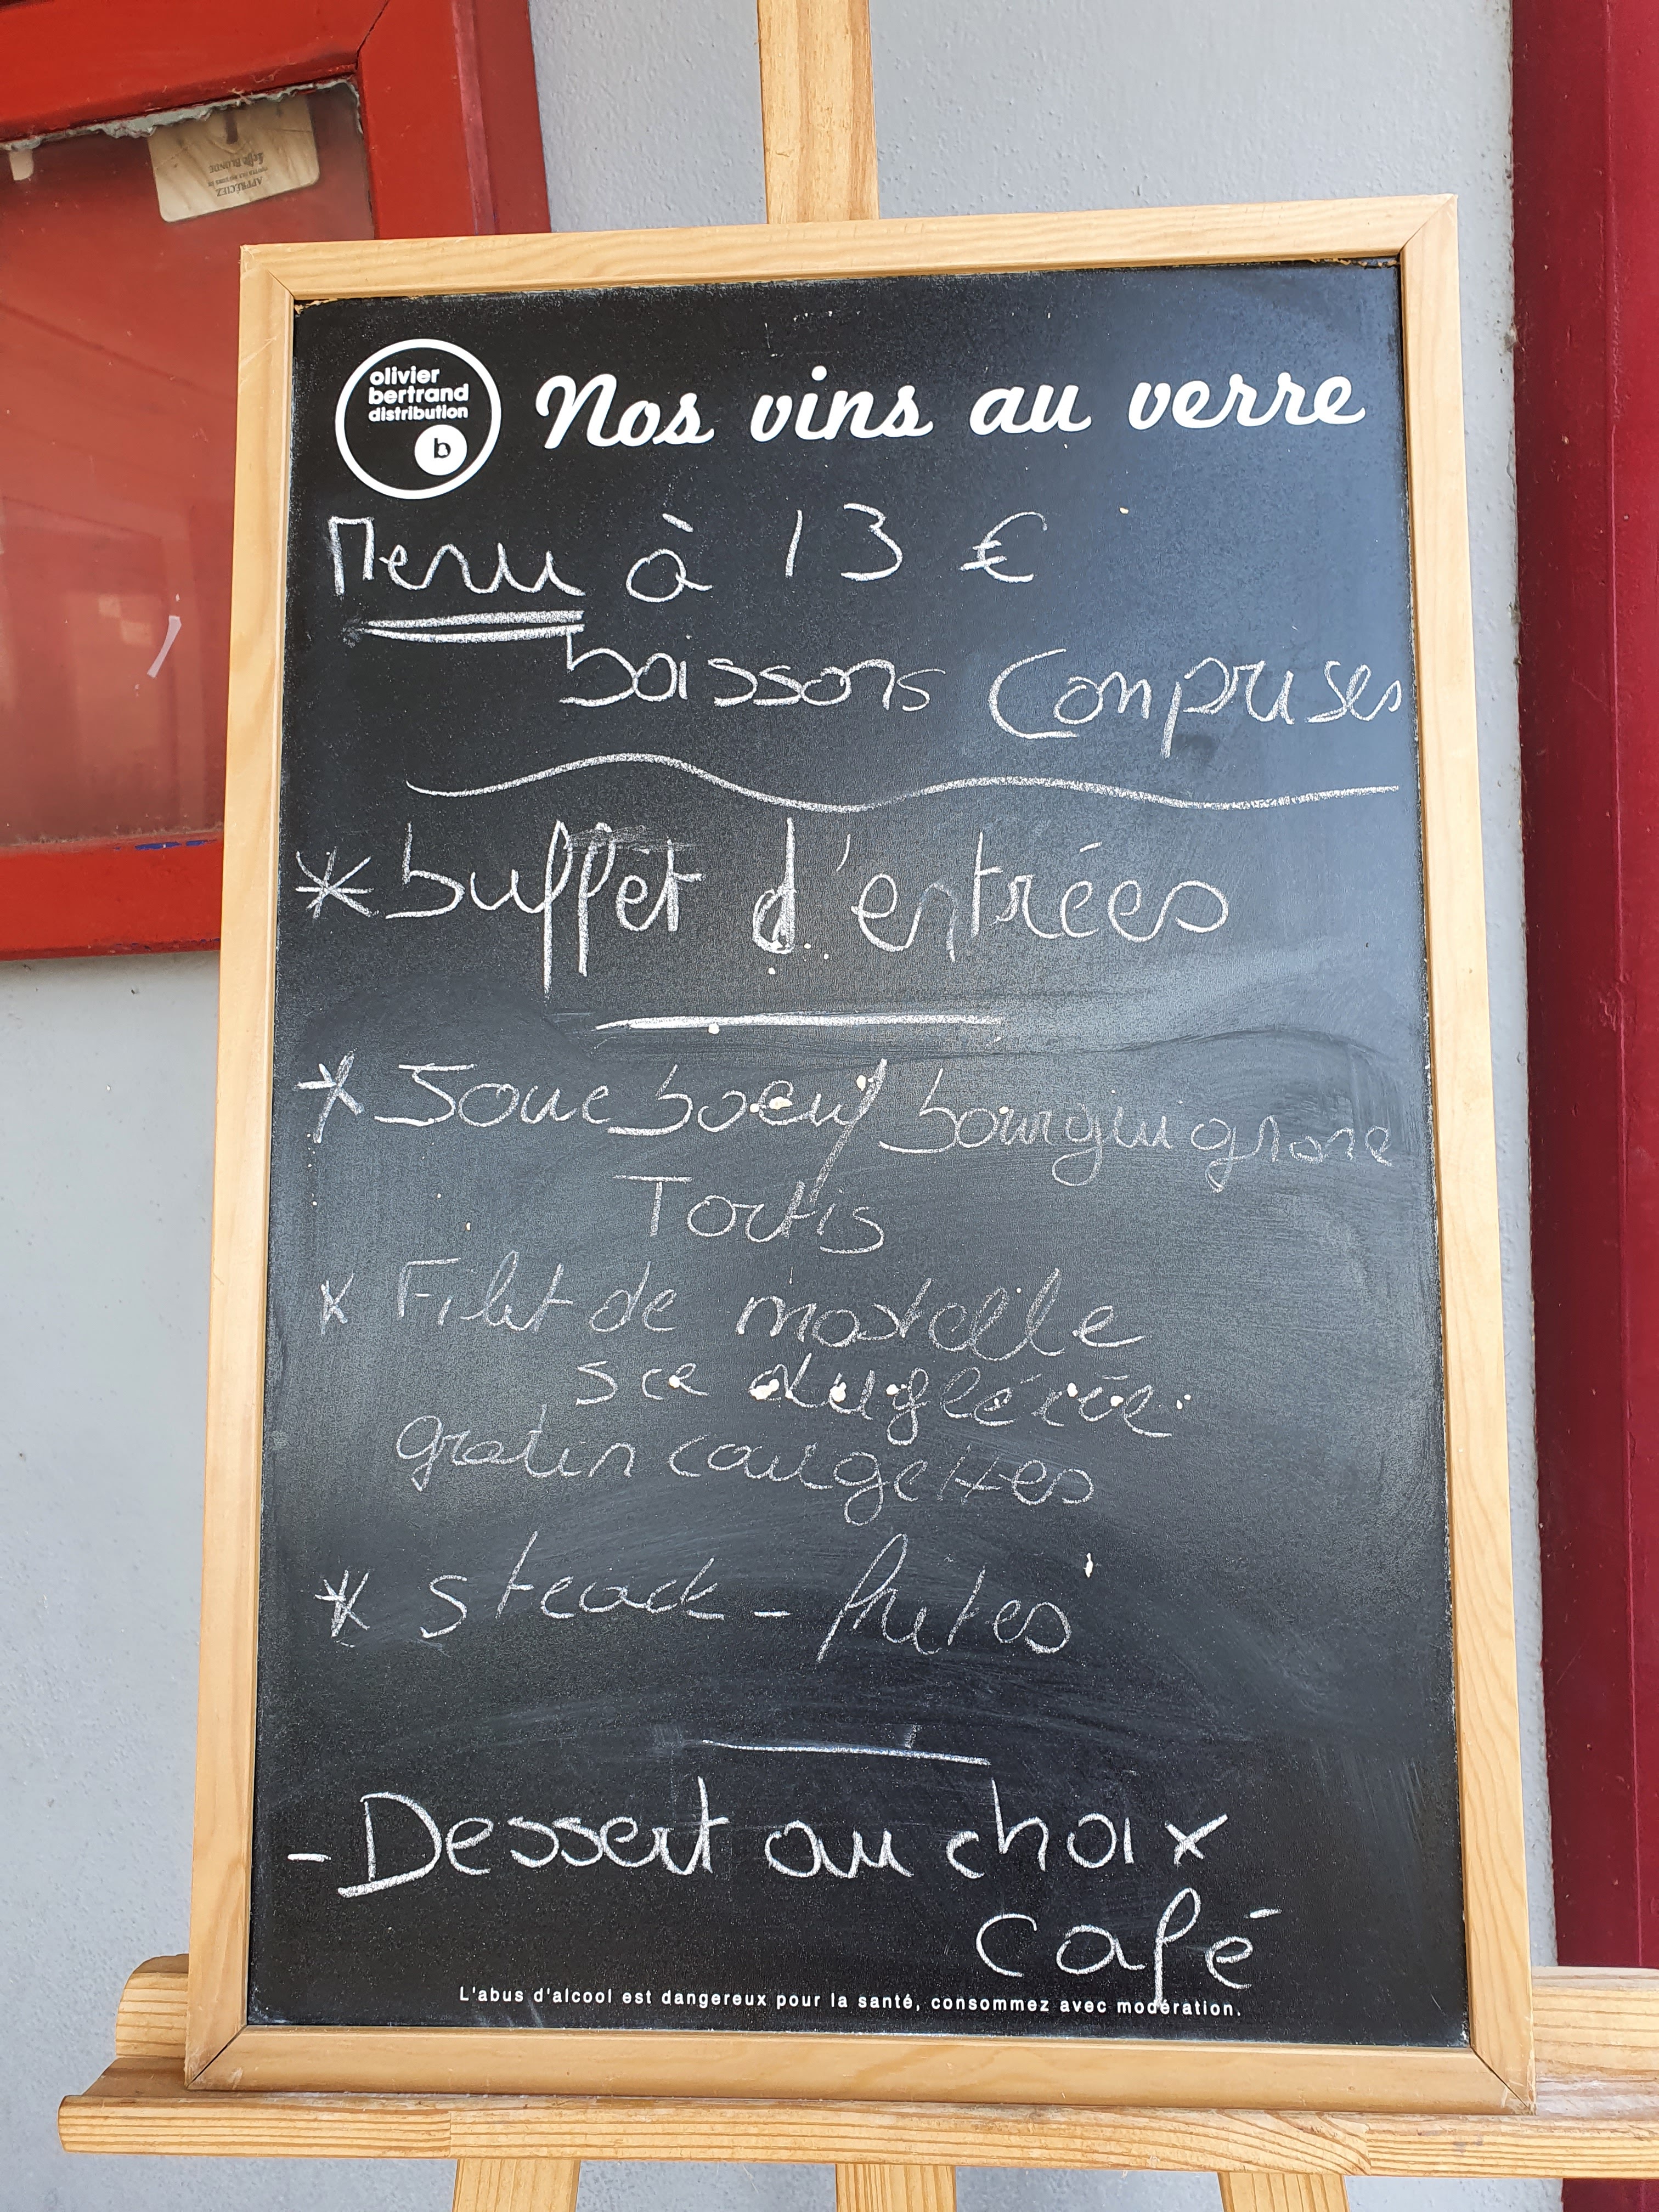 APPRÉCIEZ
olivier
bertrand
distribution
b
Nos vins au verre
Menu à 13 €
boissons comprises
*buffet d'entrées
* Joue boeuf bourguignone
Tortis
* Filet de mostelle
sce dugléréé
gratin courgettes
* steack - frites
- Dessert au choix
café
L'abus d'alcool est dangereux pour la santé, consommez avec modération.